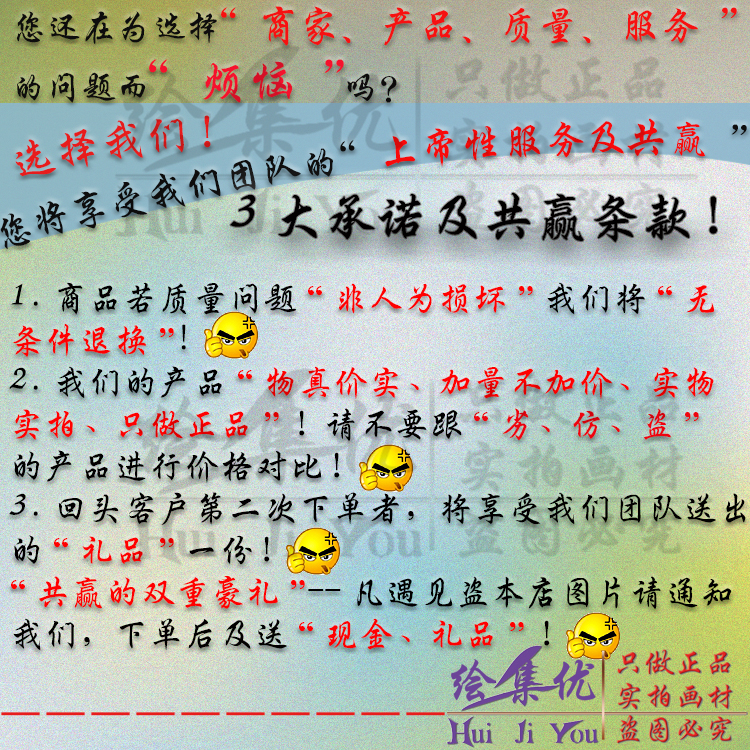 您还在为选择“商家、产品、质量、服务”
的问题而“烦恼”吗？
选择我们！
您将享受我们团队的“上帝性服务及共赢”
3大承诺及共赢条款！
1.商品若质量问题“非人为损坏”我们将“无
条件退换”！
2.我们的产品“物真价实、加量不加价、实物
实拍、只做正品”！请不要跟“劣、仿、盗”
的产品进行价格对比！
3.回头客户第二次下单者，将享受我们团队送出
的“礼品”一份！
“共赢的双重豪礼”--凡遇见盗本店图片请通知
我们，下单后及送“现金、礼品”！
绘集优
Hui Ji You
只做正品
实拍画材
盗图必究
绘集优
Hui Ji You
只做正品
实拍画材
盗图必究
绘集优
Hui Ji You
只做正品
实拍画材
盗图必究